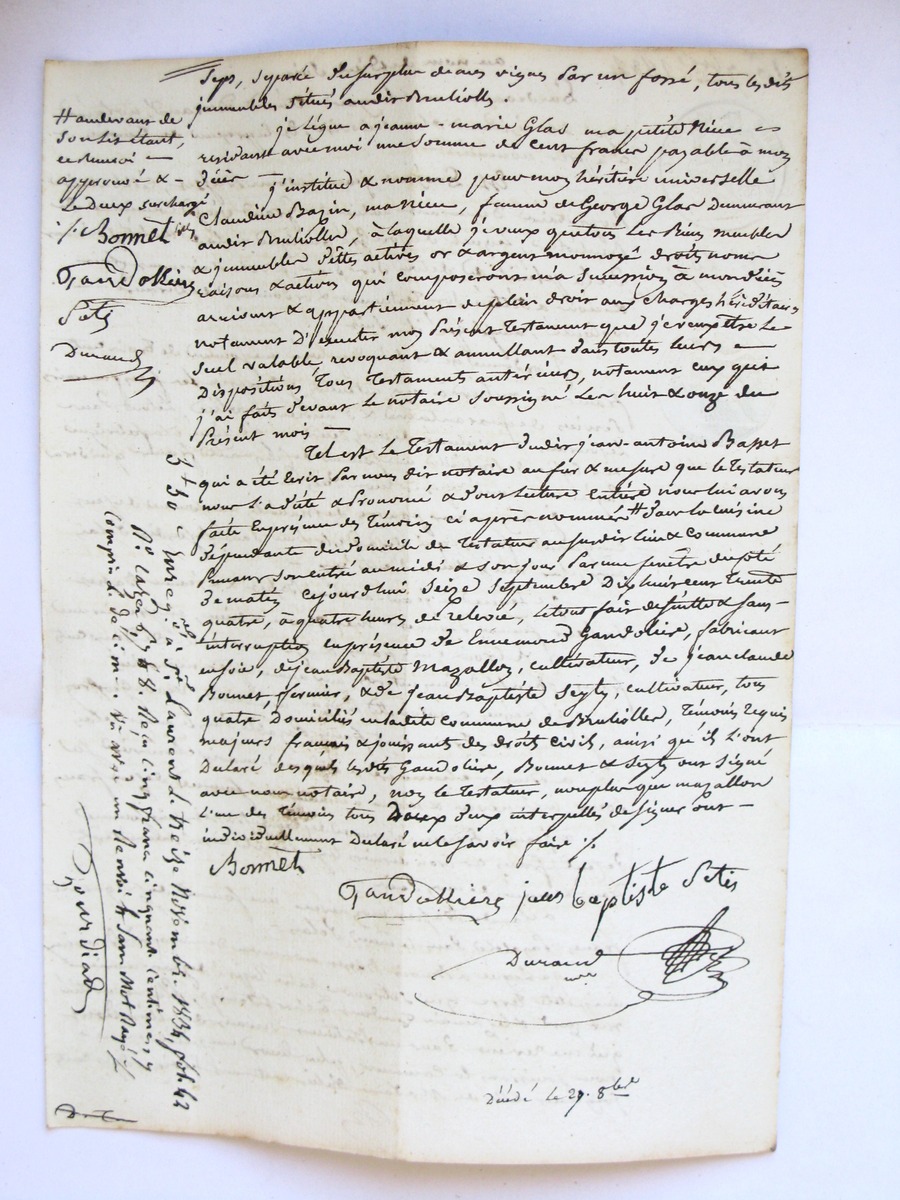 Seps, séparée du surplus de mes vignes Par un fossé, tous les dits
jmmeubles situés audit Brullioles.
je Légue a jeanne-marie Glas ma petite Niéce
residante avec moi une somme de cent francs payable à mon
déiès j'institue & nomme pour mon héritière universelle
Claudine Bazin, ma Niéce, femme de George Glas Demeurant
audit Brulioles, à laquelle je veux que tous les Biens meubles
& jmmeubles dêttes actives or & argent monnoyé droits noms
raisons & actions qui composeront ma Succession à mon déiès
arrivent & appartiennent de plein droit aux Charges héréditaires
notament D'éxecuter mon Présent Testament que je veux être Le
seul valable, revoquant & annullant dans toutes leurs
Dispositions, Tous Testaments antérieurs, notament ceux que
j'ai faits devant Le notaire soussigné Les huit & onze du
Présent mois —
Tel est Le Testament dudit jean-antoine Basset
qui a été écrit Par nous dit notaire au fur & mesure que le Testateur
nous l'a dicté & Prononcé & dont Lecture Entière nous lui avons
faite En présence des Témoins ci après nommés # dans la cuisine
dépendante du Domicile du Testateur au susdit lieu & Commune
Prenant son entrée au midi & son jour Par une fenêtre du côté
de matin cejourdhui Seize Septembre Dix huit cent trente
quatre, à quatre heures de Relevée, Le tout fait de suitte & sans
interruption en présence de Ennemond Gandolière, fabricant
en soie, de jean Baptiste Mazallon, cultivateur, de jean claude
Bonnet, fermier, & de jean Baptiste Seyty, cultivateur, tous
quatre Domiciliés en ladite Commune de Brulioles, Témoins Requis
majeurs francais & jouissants des droits civil, ainsi qu'ils l'ont
Déclaré desquels lesdits Gandolière, Bonnet & Seyty ont Signé
avec nous notaire, non le Testateur, non plus que mazallon
l'un des Témoins tous Deux d'eux interpellés de signer ont —
individuellement Déclaré ne le savoir faire ./.
Bonnet
Gandolliere jean baptiste Setis
Durand
nre
Déiédé Le 29. 8bre
# au devant de
son lit étant,
ce Renvoi —
approuvé & —
Le Deux surchargé
./. Bonnet
Gandolliere
Setis
Durand
Enreg. à St Laurent Le treize Novembre 1834, fol. 42
Ro Cases 6, 7 & 8. Reçu cinq francs cinquante centimes, y
compris le décime.
Gourdiad